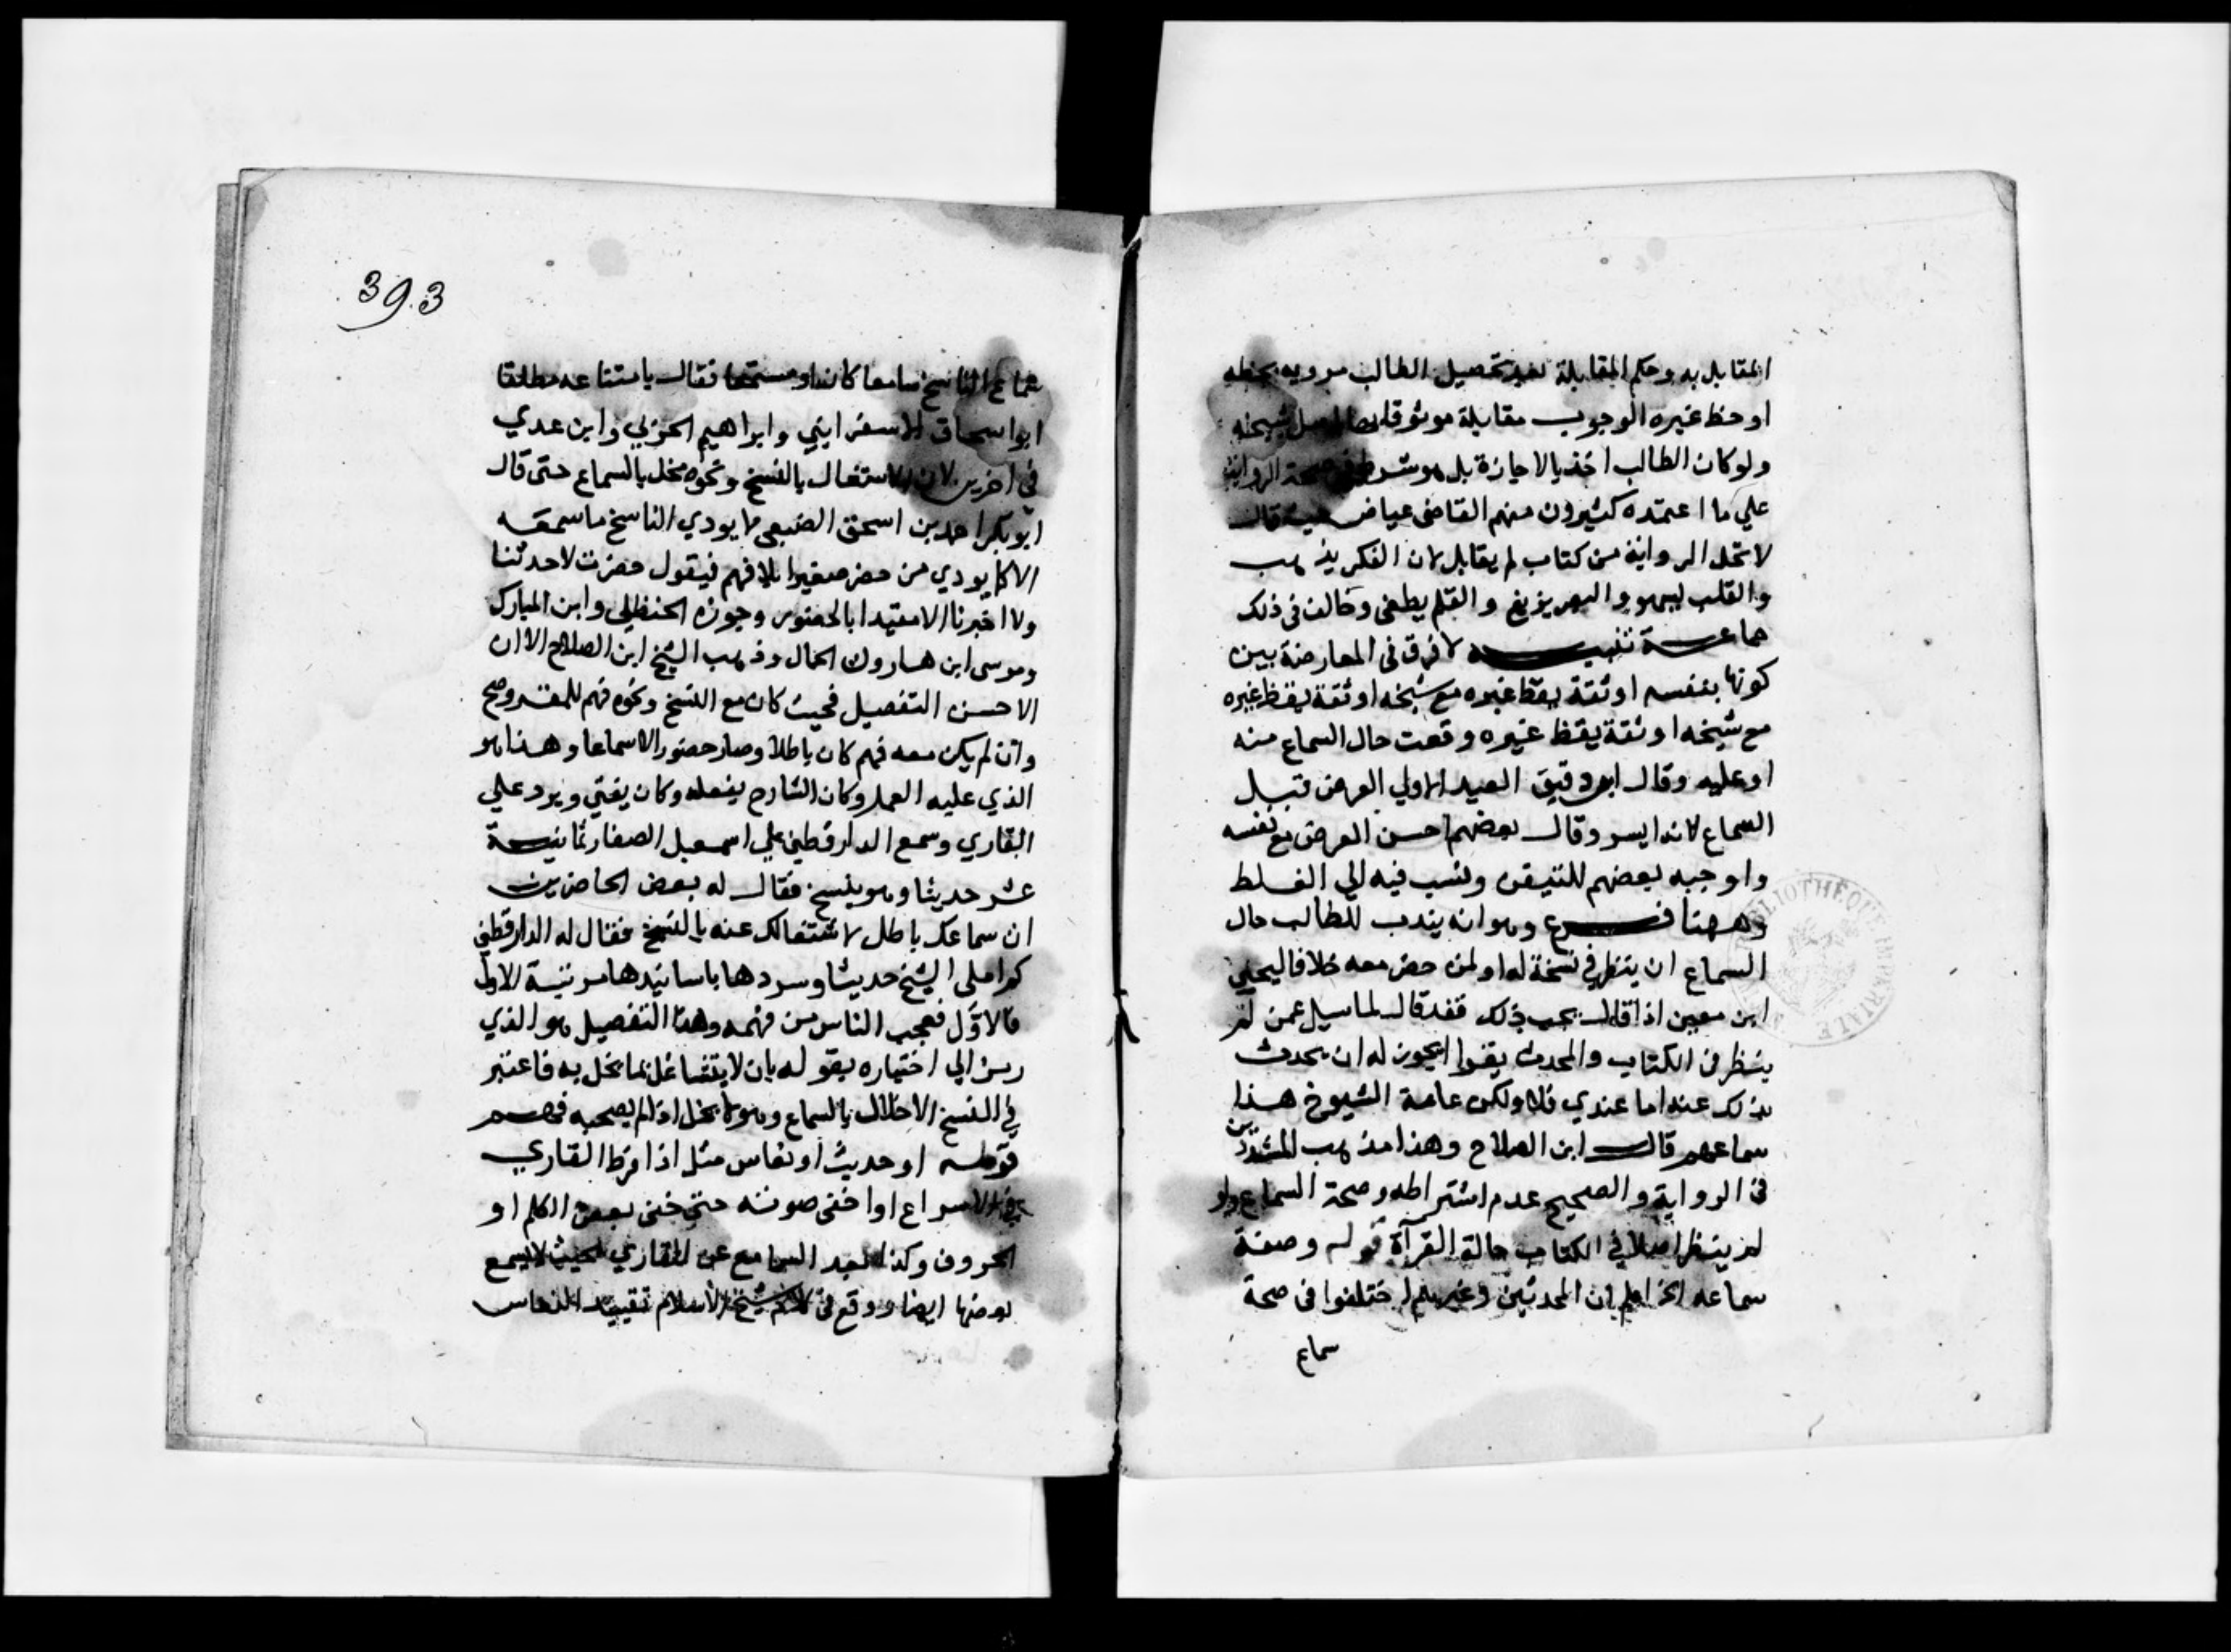 المقابل به وحكم المقابلة بعد تحصيل الطالب مرويه بخطه
او خط غيره الوجوب مقابلة موثوقا بها باصل شيخه
ولو كان الطالب اخذ بالاجازة بل هو شرط في صحة الرواية
علي ما اعتمده كثيرون منهم القاضى عياض حيث قال
لا تحل الرواية من كتاب لم يقابل لان الفكر يذهب
والقلب يسهو والبصر يزيغ والقلم يطغى وخالف فى ذلك
جماعة تنبيه لا فرق فى المعارضة بين
كونها بنفسه او ثقة يقظ غيره مع شيخه او ثقة يقظ غيره
مع شيخه او ثقة يقظ غيره وقعت حال السماع منه
او عليه وقال ابن دقيق العيد الاولي العرض قبل
السماع لانه ايسر وقال بعضهم احسن العرض مع نفسه
واوجبه بعضهم للتيقن ونسب فيه الي الغلط
وههنا فرع وهو انه يندب للطالب حال
السماع ان ينظر في نسخة له او لمن حضر معه خلافا ليحيي
ابن معين اذ قال يجب ذلك فقد قال لما سيل عمن لم
ينظر فى الكتاب والمحدث يقرا ايجوز له ان يحدث
بذلك عنه اما عندي فلا ولكن عامة الشيوخ هذا
سماعهم قال ابن الصلاح وهذا مذهب المشددين
فى الرواية والصحيح عدم اشتراطه وصحة السماع ولو
لم ينظر اصلا في الكتاب حالة القرآة قوله وصفة
سماعه الخ اعلم ان المحدثين وغيرهم اختلفوا فى صحة
سماع
393
سماع الناسخ سامعا كان او مستمعا فقال بامتناعه مطلقا
ابو اسحاق الاسفراييني وابراهيم الحربي وابن عدي
في اخرين لان الاشتغال بالنسخ ونحوه مخل بالسماع حتى قال
ابو بكر احمد بن اسحق الصبغى لا يودي الناسخ ما سمعه
الا كما يودي من حضر صغيرا بلا فهم فيقول حضرت لا حدثنا
ولا اخبرنا الا مقيدا بالحضور وجوزه الحنظلي وابن المبارك
وموسى ابن هارون الحمال وذهب الشيخ ابن الصلاح الا ان
الاحسن التفصيل فحيث كان مع النسخ ونحوه فهم للمقروء صح
وان لم يكن معه فهم كان باطلا وصار حضورا لا سماعا وهذا هو
الذي عليه العمل وكان الشارح يفعله وكان يفتي ويرد علي
القاري وسمع الدارقطني علي اسمعيل الصفار ثمانية
عشر حديثا وهو ينسخ فقال له بعض الحاضرين
ان سماعك باطل لاشتغالك عنه بالنسخ فقال له الدارقطني
كم املى الشيخ حديثا وسردها باسانيدها مرتبة الاول
فالاول فعجب الناس من فهمه وهذا التفصيل هو الذي
رمز الي اختياره بقوله بان لا يتشاغل بما يخل به فاعتبر
في النسخ الاخلال بالسماع وهو لا يخل اذا لم يصحبه فهم
قوله او حديث او نعاس مثل اذا افرط القاري
في الاسراع او اخفى صوته حتي خفى بعض الكلم او
الحروف وكذا بعد السامع عن القاري بحيث لا يسمع
بعضها ايضا ووقع فى كلام شيخ الاسلام تقييد النعاس